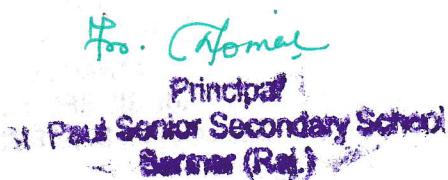 Fr. Thomas
Principal
St Paul Senior Secondary School
Barmer (Raj.)